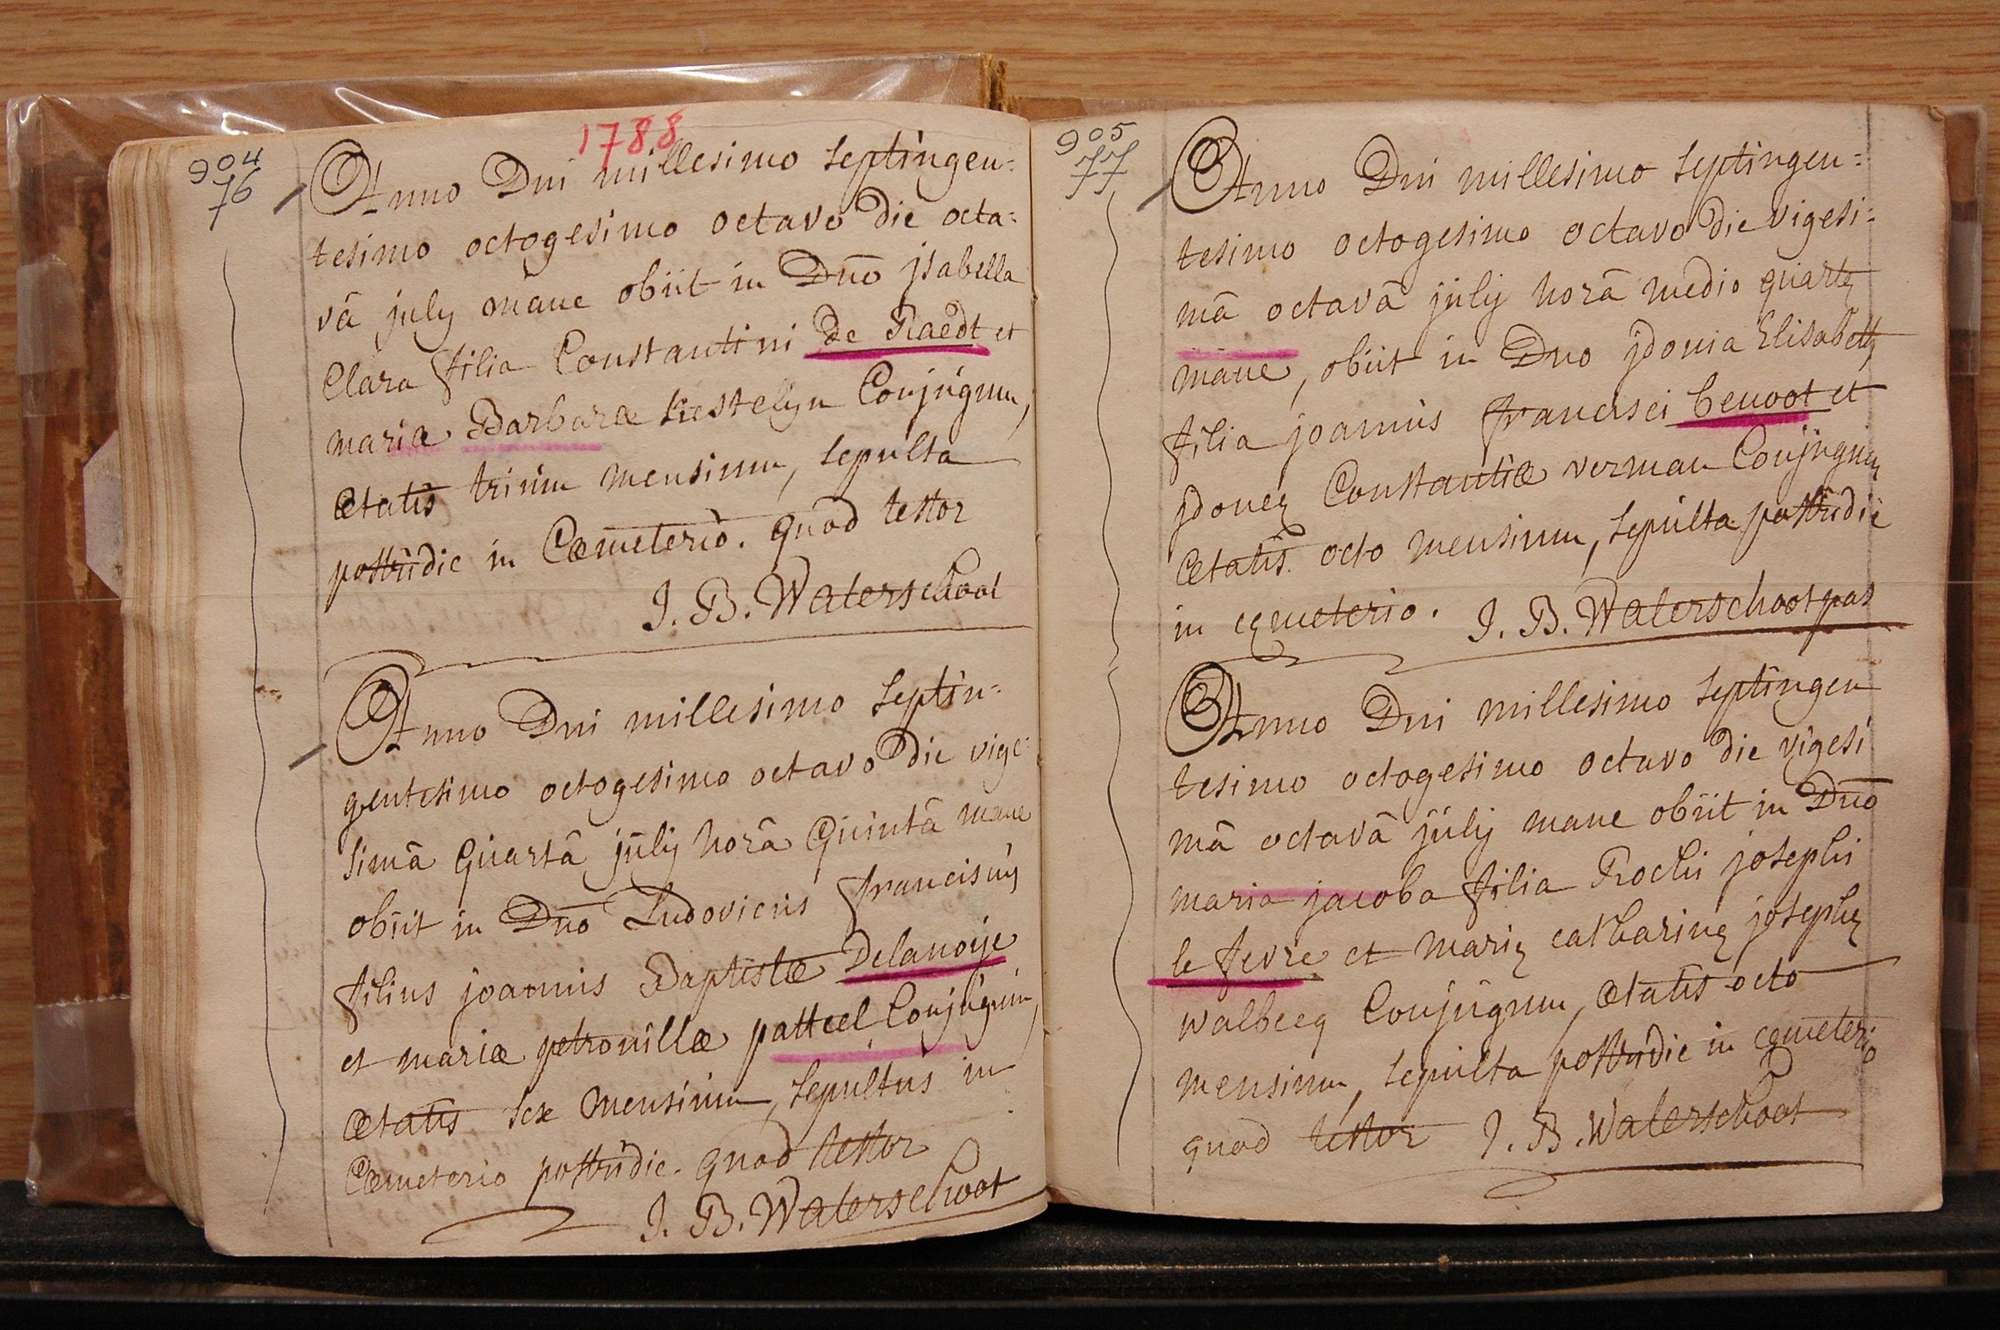 1788
904
76
Anno Dni millesimo septingen=
tesimo octogesimo octavo die octa=
vâ july mane obiit in Dno jsabella
Clara filia Constantini de Raedt et
mariæ Barbaræ Kestelyn Conjugum,
ætatis trium mensium, sepulta
postridie in Cœmeterio. quod testor
J. B. Waterschoot
Anno Dni millesimo septin=
gentesimo octogesimo octavo die vige=
simâ quartâ july horâ quintâ mane
obiit in Dno Ludovicus franciscus
filius joannis Baptistæ Delanoije
et mariæ petronillæ patteel Conjugum,
ætatis sex mensium, sepultus in
Cœmeterio postridie. quod testor
J. B. Waterschoot
905
77
Anno Dni millesimo septingen=
tesimo octogesimo octavo die vigesi=
mâ octavâ july horâ medio quartę
mane, obiit in Dno jdonia Elisabeth
filia joannis francisci Benoot et
jdoneę Constantiæ verman Conjugum
ætatis octo mensium, sepulta postridie
in cęmeterio. J. B. Waterschoot pas
Anno Dni millesimo septingen
tesimo octogesimo octavo die vigesi
mâ octavâ july mane obiit in Dno
maria jacoba filia Rochi josephi
le fevre et marię catharinę josephę
walbecq Conjugum, ætatis octo
mensium, sepulta postridie in cęmeterio
quod testor J. B. Waterschoot